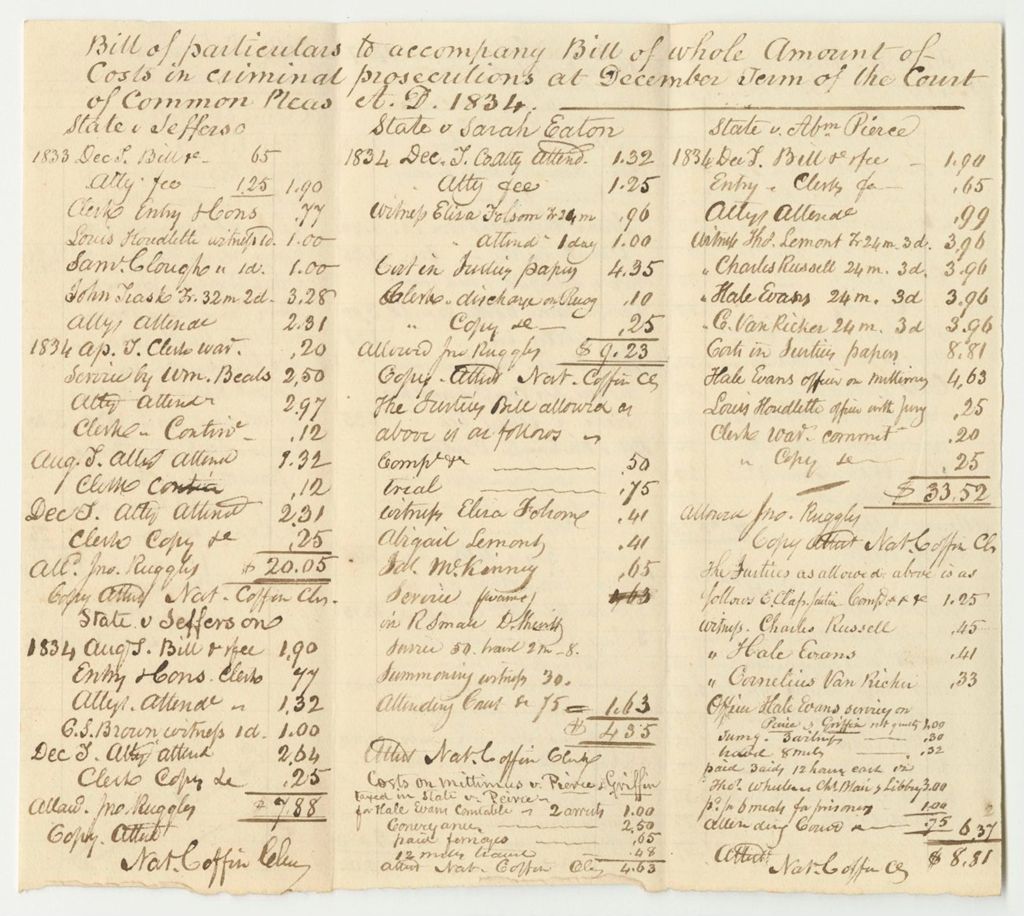 Bill of particulars to accompany Bill of whole Amount of
Costs in criminal prosecutions at December Term of the Court
of Common Pleas A. D. 1834.
State v Jefferso
1833 Dec T. Bill &c - 65
Atty fee 1.25 1.90
Clerk Entry & Cons .77
Louis Houdlette witness 1d. 1.00
Saml. Clough " 1d. 1.00
John Trask Tr. 32 m 2d - 3.28
Attys attendc 2.31
1834 Ap. T. Clerk war. .20
Service by Wm. Beals 2,50
Atty attendc 2.97
Clerk - Continc - .12
Aug. T. Attys attend 1.32
Clerk .12
Dec T. Atty Attend 2,31
Clerk Copy &c .25
Alld. Jno. Ruggles $ 20.05
Copy Attest Nat. Coffin Clk.
State v Jefferson
1834 Aug T. Bill & fee 1,90
Entry & Cons. Clerk 77
Attys. Attendc " 1,32
C.S. Brown witness 1d. 1.00
Dec T. Atty attend 2,64
Clerk Copy &c .25
Allowd. Jno Ruggles $ 7,88
Copy. Attest
Nat. Coffin Clerk
State v Sarah Eaton
1834 Dec. T. Co. Atty Attend. 1.32
Atty fee 1.25
Witness Eliza Folsom Tr 24 m ,96
" attendc 1 day 1.00
Cost in Justices papers 4.35
Clerk - discharge on Recog ,10
" Copy &c - ,25
Allowed Jno Ruggles $ 9.23
Copy - Attest Nat. Coffin Clk
The Justices Bill allowed as
above is as follows -
Compt &c .50
trial .75
witness Eliza Folsom .41
Abigail Lemont .41
McKinney ,65
Service
in R Smart D. Sheriff
Service 50. travel 2 m - 8.
Summoning witness 30.
Attending Court &c 75 = 1.63
$ 4.35
Attest Nat. Coffin Clerk
Costs on mittimus v. Pierce & Griffin
taxed in State v. Peirce -
for Hale Evans Constable - 2 arrests 1.00
Conveyance 2,50
paid ferriages ,65
12 miles travel 48
Attest Nat. Coffin Clk 4.63
State v. Abm Pierce
1834 Dec T. Bill &c & fee - 1.90
Entry - Clerks fee .65
Attys Attendc ,99
Witness Tho. Lemont Tr 24 m. 3d. 3,96
" Charles Russell 24 m. 3d. 3.96
" Hale Evans 24 m. 3d 3.96
" C. Van Richer 24 m. 3d 3.96
Costs in Justices papers 8.81
Hale Evans officer on mittimus 4,63
Louis Houdlette officer with Jury .25
Clerk war. commit .20
" Copy &c - 25
$ 33,52
allowed Jno. Ruggles
Copy Attest Nat. Coffin Clk
The Justices as allowed above is as
follows E. Clap Justice Comp &c & &c 1.25
witness. Charles Russell .45
" Hale Evans .41
" Cornelius Van Richer ,33
Officer Hale Evans service on
Peirce & Griffin not guilty 1,00
Sumg. 3 witness .30
travel 8 miles .32
paid 3 aids 12 hours each viz
Tho. Chs. Blair & Libby 3.00
pd. for 8 meals for prisoners 1.00
attending Court &c .75 6 37
$ 8.81
Attest.
Nat. Coffin Clk